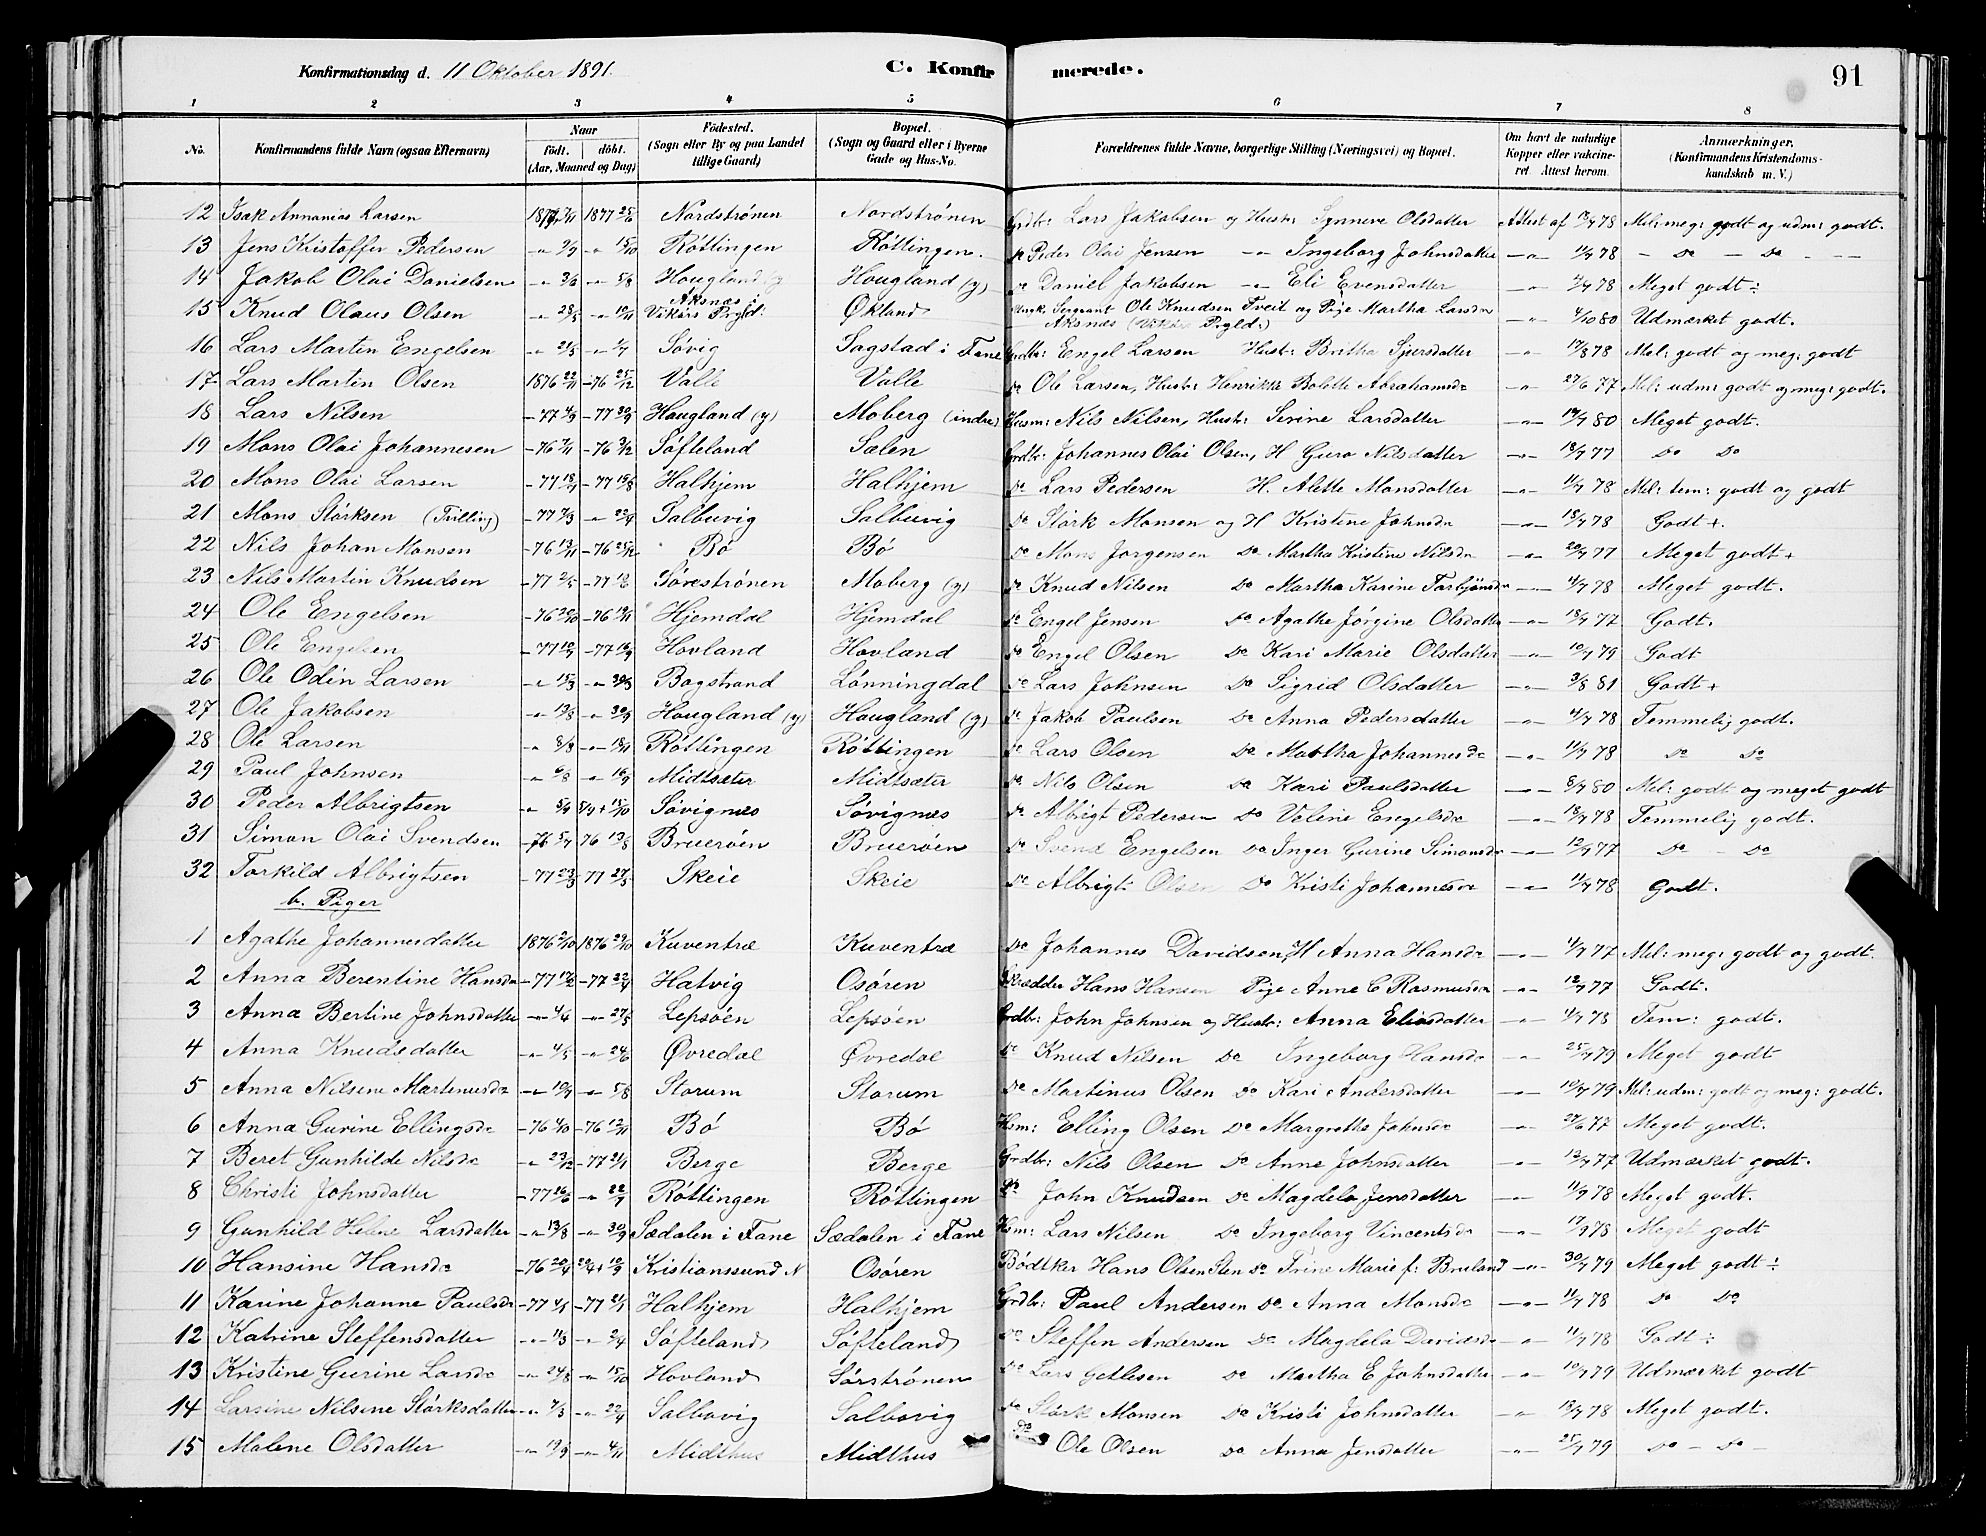 Konfirmationsdag d. 11 Oktober 1891. C. Konfirmerede. 91
1 2 3 4 5 6 7 8
No. Konfirmandens fulde Navn (ogsaa Efternavn) Naar födt. döbt. (Aar, Maaned og Dag) Födested. (Sogn eller By og paa Landet tillige Gaard) Bopæl. (Sogn og Gaard eller i Byerne Gade og Hus-No. Forældrenes fulde Navne, borgerlige Stilling (Næringsvei) og Bopæl. Om havt de naturlige Kopper eller vakcineret. Attest herom. Anmærkninger. (Konfirmandens Kristendomskundskab m. V.)
12 Isak Annanias Larsen 1877 25/6 Nordstrønen Nordstrønen Grdbr: Lars Jakobsen og Hustr: Synneve Olsdatter Attest af 78 Mel: meg: godt og udm: godt.
13 Jens Kristoffer Pedersen 15/10 Røttingen Røttingen. Do Peder Olai Jensen -"- Ingeborg Johnsdatter -"- 11/7 78 - Do - Do - -
14 Jakob Olai Danielsen 3/6 5/8 Hougland (y) Hougland (y) Do Daniel Jakobsen -"- Eli Evensdatter -"- 4/7 78 Meget godt ÷
15 Knud Olaus Olsen 28/5 10/11 Aksnæs i Vikørs Prgld: Økland Ungk. Sergeant Ole Knudsen Tveit og Pige Martha Larsdr Aksnæs (Vikørs Prgld:) -"- 4/10 80 Udmærket godt.
16 Lars Martin Engelsen 21/5 1/7 Søvig Sagstad i Fane Grdbr: Engel Larsen Hustr: Britha Sjursdatter -"- 17/8 78 Mel: godt og meg: godt
17 Lars Martin Olsen 1876 22/11 -76 25/12 Valle Valle Do Ole Larsen, Hustr: Henrikke Bolette Abrahamsdr -"- 27/6 77 Mel: udm: godt og meg: godt.
18 Lars Nilsen -77 4/9 -77 30/9 Hougland (y) Moberg (indre) Husm: Nils Nilsen, Hustr: Serine Larsdatter -"- 14/7 80 Meget godt.
19 Mons Olai Johannesen -76 7/11 -76 3/12 Søfteland Sælen Grdbr: Johannes Olai Olsen, H Guro Nilsdatter -"- 18/7 77 Do Do
20 Mons Olai Larsen -77 18/7 -77 19/8 Halhjem Halhjem Do Lars Pedersen H. Alette Monsdatter -"- 11/7 78 Mel: tem: godt og godt
21 Mons Størksen (Tvilling) -77 7/3 -"- 22/4 Salbuvig Salbuvig Do Størk Monsen og H Kristene Johnsdr -"- 18/7 78 Godt +.
22 Nils Johan Monsen -76 13/11 -76 25/12 Bø Bø Do Mons Jørgensen Do Martha Kristine Nilsdr -"- 20/7 77 Meget godt +
23 Nils Martin Knudsen -77 2/5 -77 Sørestrønen Moberg (y) Do Knud Nilsen Do Martha Karine Torbjørnsdr -"- 4/7 78 Meget godt.
24 Ole Engelsen -76 20/10 -76 19/11 Hjemdal Hjemdal Do Engel Jensen Do Agathe Jørgine Olsdatter -"- 18/7 77 Godt.
25 Ole Engelsen -77 19/7 -77 16/9 Hovland Hovland Do Engel Olsen Do Kari Marie Olsdatter -"- 10/7 79 Godt
26 Ole Odin Larsen -"- 15/3 -"- Bogstrand Lønningdal Do Lars Johnsen Do Sigrid Olsdatter -"- 3/8 81 Godt +
27 Ole Jakobsen -"- 13/8 -"- 30/9 Hougland (y) Hougland (y) Do Jakob Paulsen Do Anna Pedersdatter -"- 4/7 78 Temmelig godt.
28 Ole Larsen -"- 8/9 -"- 18/11 Røttingen Røttingen Do Lars Olsen Do Martha Johannesdr -"- 11/7 78 Do Do
29 Paul Johnsen -"- 6/8 -"- 16/9 Midtsæter Midtsæter Do Nils Olsen Do Kari Paulsdatter -"- 8/7 80 Mel: godt og meget godt
30 Peder Albrigtsen -"- 5/9 5/9 + 15/10 Søvignæs Søvignæs Do Albrigt Pedersen Do Veline Engelsdr -"- 18/7 78 Temmelig godt.
31 Simon Olai Svendsen -76 5/7 76 13/8 Bruerøen Bruerøen Do Svend Engelsen Do Inger Gurine Simonsdr -"- 12/9 77 Do Do
32 Torkild Albrigtsen -77 23/3 77 27/5 Skeie Skeie Do Albrigt Olsen Do Kristi Johannesdr -"- 11/7 78 Godt.
b. Piger
1 Agathe Johannesdatter 1876 2/10 1876 29/10 Kuventræ Kuventræ Do Johannes Davidsen, H Anna Hansdr -"- 4/7 77 Mel: meg: godt og godt.
2 Anna Berentine Hansdr -77 17/2 -77 22/4 Hatvig Osøren Skrædder Hans Hansen Pige Anne C Rasmusdr -"- 12/7 77 Godt.
3 Anna Bertine Johnsdatter -"- 4/4 -"- 27/5 Lepsøen Lepsøen Grdbr: John Johnsen og Hustr: Anna Eliasdatter -"- 4/7 78 Tem: godt.
4 Anna Knudsdatter -"- 4/5 -"- 24/6 Øvredal Øvredal Do Knud Nilsen Do Ingeborg Hansdr -"- 25/7 79 Meget godt
5 Anna Nilsine Martinusdr -"- 10/7 -"- 5/8 Storum Storum Do Martinus Olsen Do Kari Andersdatter -"- 10/7 79 Mel: udm: godt og meg: godt.
6 Anna Gurine Ellingsdr -76 4/10 -76 12/11 Bø Bø Hsm: Elling Olsen Do Margrethe Johnsdr -"- 27/6 77 Meget godt.
7 Beret Gunhilde Nilsdr -"- 23/12 -77 21/1 Berge Berge Grdbr: Nils Olsen Do Anna Johnsdatter -"- 12/7 77 Udmærket godt.
8 Christi Johnsdatter -77 16/6 -"- 22/7 Røttingen Røttingen Do John Knudsen Do Magdela Jensdatter -"- 11/9 78 Meget godt.
9 Gunhild Helene Larsdatter -"- 13/8 -"- 30/9 Sædalen i Fane Sædalen i Fane Hsm: Lars Nilsen Do Ingeborg Vincentsdr -"- 17/9 78 Meget godt
10 Hansine Hansdr -76 20/4 Kristianssund N Osøren Bødtker Hans Olsen Sten Do Trine Marie f: Bruland -"- 30/7 79 Meget godt ÷
11 Karine Johanne Paulsdr -77 4/5 -77 21/5 Halhjem Halhjem Grdbr: Paul Andersen Do Anna Monsdr -"- 11/7 78 Do Do
12 Katrine Steffensdatter -"- 11/3 -"- 2/4 Søfteland Søfteland Do Steffen Andersen Do Magdela Davidsdr -"- 11/7 78 Godt ÷
13 Kristine Gurine Larsdr -"- 24/8 -"- 15/10 Hovland Sørstrønen Do Lars Getlesen Do Martha E Johnsdatter -"- 10/7 79 Udmærket godt
14 Larsine Nilsine Størksdatter -"- 7/3 -"- 22/4 Salbovig Salbovig Do Størk Monsen Do Kristi Johnsdatter -"- 18/7 78 Meget godt.
15 Malene Olsdatter -"- 19/9 -"- 4/11 Midthus Midthus Do Ole Olsen Do Anna Jensdatter -"- 25/7 79 Do - Do -